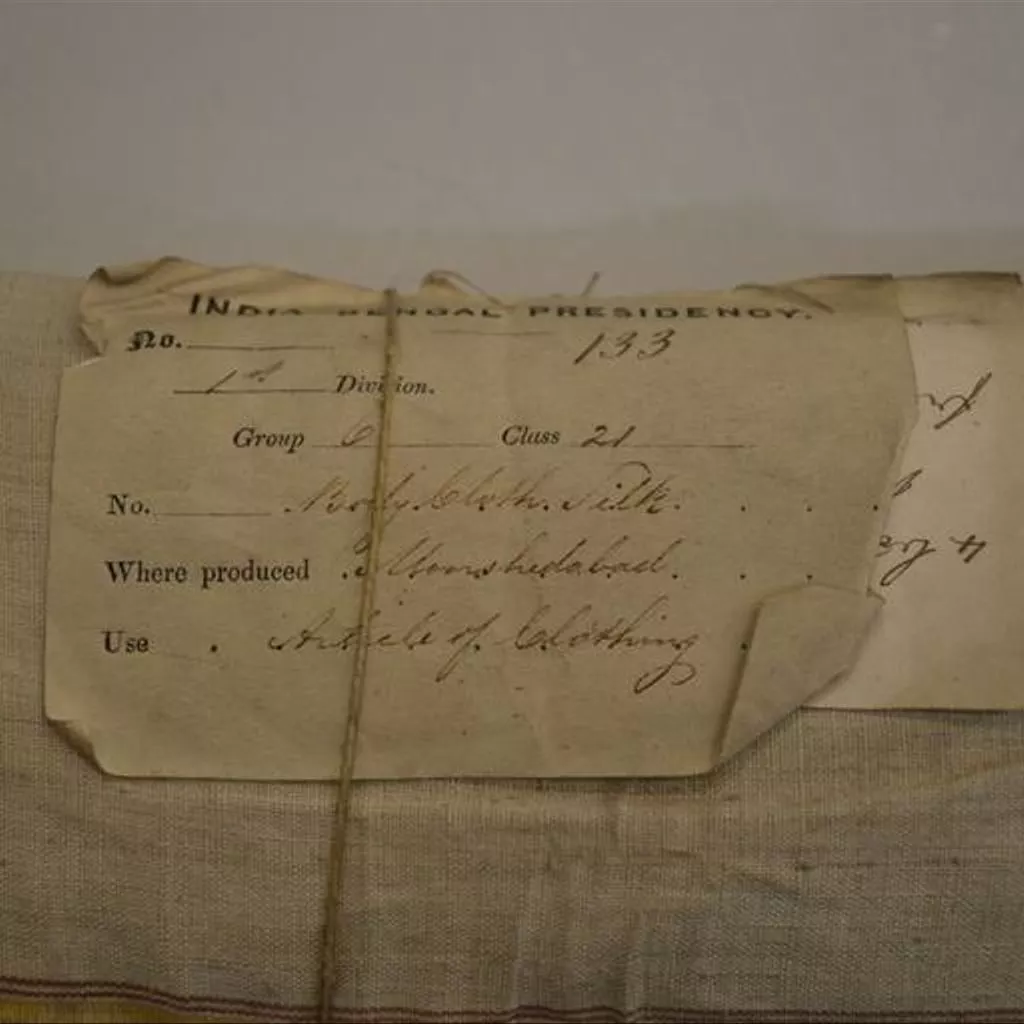 INDIA BENGAL PRESIDENCY.
No. 133
1st Division.
Group 6 Class 21
No. Body Cloth. Silk.
Where produced . Moorshedabad.
Use . Article of Clothing